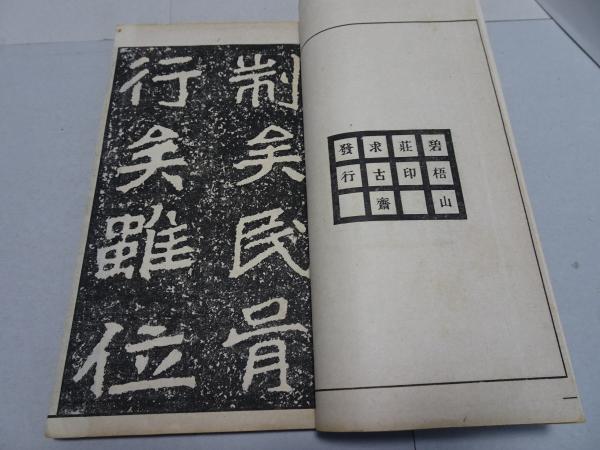 碧梧山
莊印
求古齋
發行
制矣民胥
行矣雖位